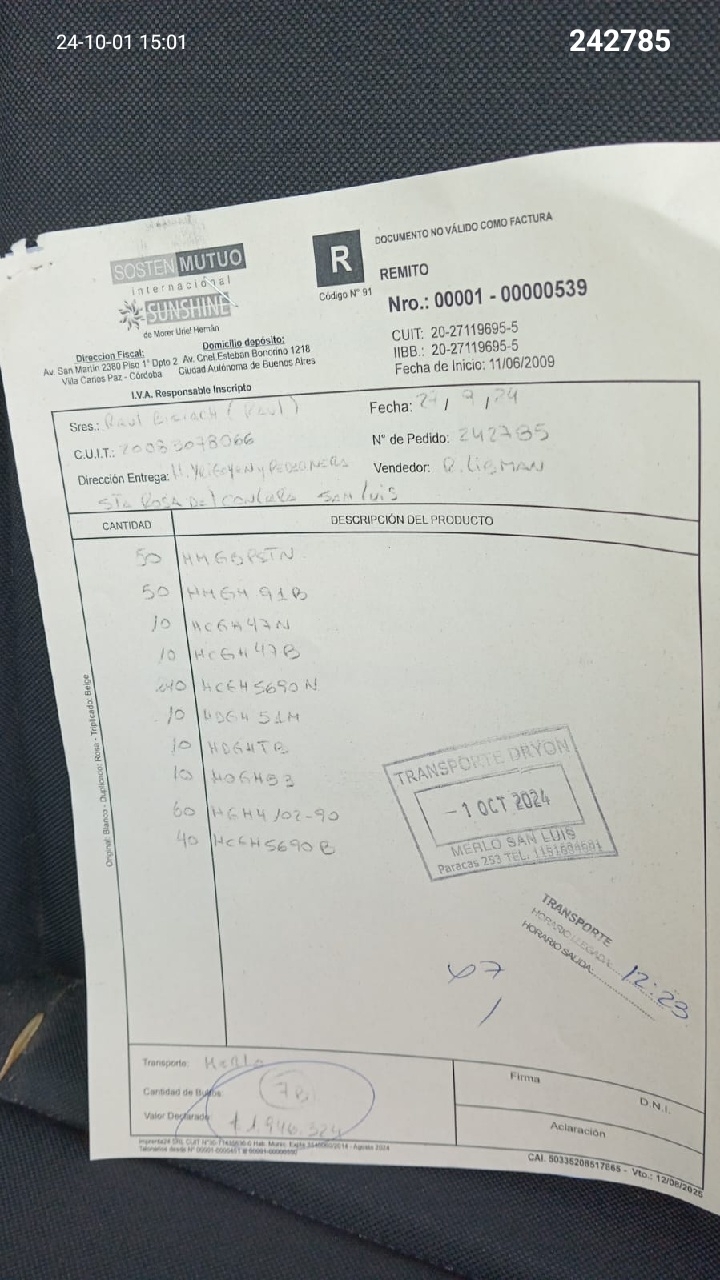 24-10-01 15:01
242785
SOSTEN MUTUO
internacional
SUNSHINE
de Morer Uriel Hernán
R
Código N° 91
DOCUMENTO NO VÁLIDO COMO FACTURA
REMITO
Nro.: 00001 - 00000539
CUIT: 20-27119695-5
IIBB.: 20-27119695-5
Fecha de Inicio: 11/06/2009
Direccion Fiscal:
Av. San Martin 2380 Piso 1° Dpto 2
Villa Carlos Paz - Córdoba
Domicilio depósito:
Av. Cnel.Esteban Bonorino 1218
Ciudad Autónoma de Buenos Aires
I.V.A. Responsable Inscripto
Sres.: Raul
Fecha: 27/9/24
C.U.I.T.: 20083078066
N° de Pedido: 242785
Dirección Entrega: H. Yrigoyen y Pedernera
Vendedor: R. Lisman
Sta Rosa Del Conlara San Luis
CANTIDAD DESCRIPCIÓN DEL PRODUCTO
50
50 HMGH 91B
10 HCGH47N
10 HCGH47B
HCGH5690N
10 HDGH 51M
10 HDGHTB
10
60 HGH4102-90
40 HCGH5690B
TRANSPORTE DRYON
-1 OCT 2024
MERLO SAN LUIS
Paracas 253 TEL.
TRANSPORTE
HORARIO LLEGADA:
HORARIO SALIDA:
12:23
Original: Blanco - Duplicado: Rosa - Triplicado: Beige
Transporte: Merlo
Cantidad de Bultos
Valor Declarado: $1.946.324
Firma
D.N.I.
Aclaración
CAI: 50335208517865 - Vto.: 12/08/2025